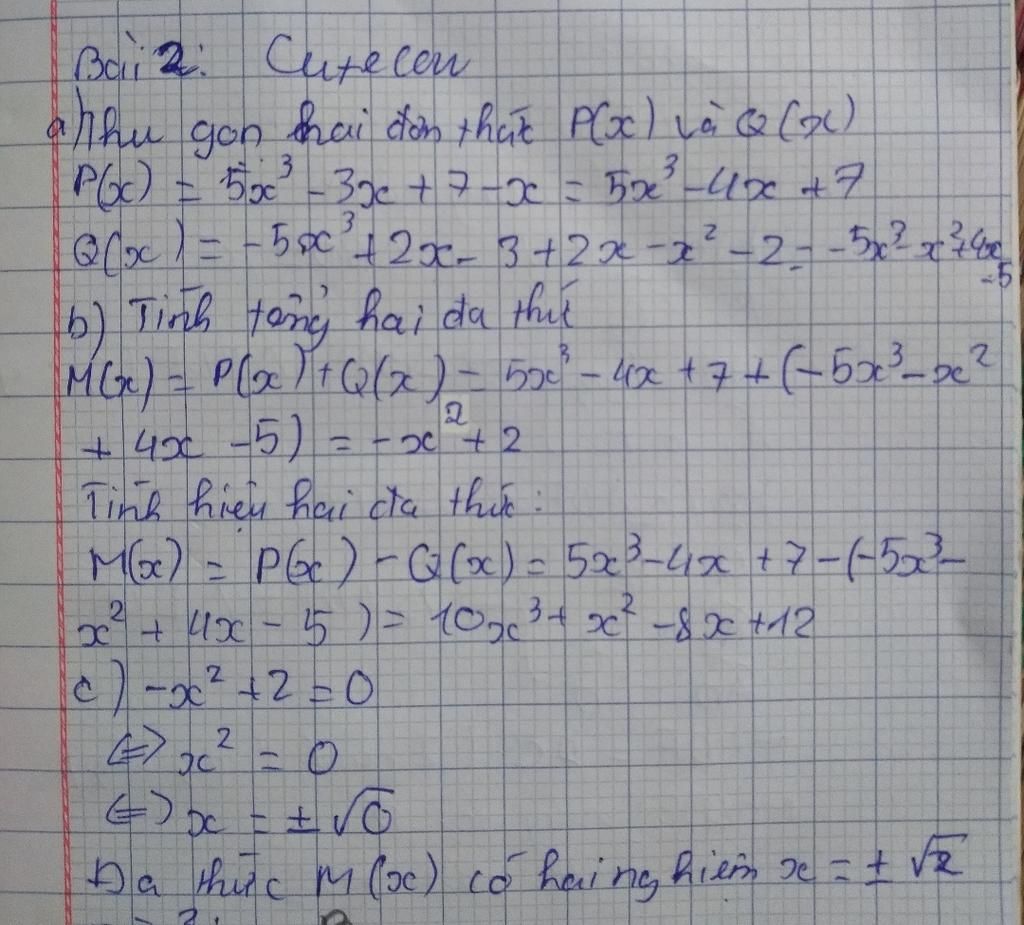 Bài 2: Cutecou
a) Thu gọn hai đơn thức P(x) và Q(x)
P(x) = 5x³ - 3x + 7 - x = 5x³ - 4x + 7
Q(x) = -5x³ + 2x - 3 + 2x - x² - 2 = -5x³ x² + 4x
-5
b) Tính tổng hai đa thức
M(x) = P(x) + Q(x) = 5x³ - 4x + 7 + (-5x³ - x²
+ 4x - 5) = -x² + 2
Tính hiệu hai đa thức:
M(x) = P(x) - Q(x) = 5x³ - 4x + 7 - (-5x³ -
x² + 4x - 5) = 10x³ + x² - 8x + 12
c) -x² + 2 = 0
⇔ x² = 0
⇔ x = ±√0
Đa thức M(x) có hai nghiệm x = ±√2